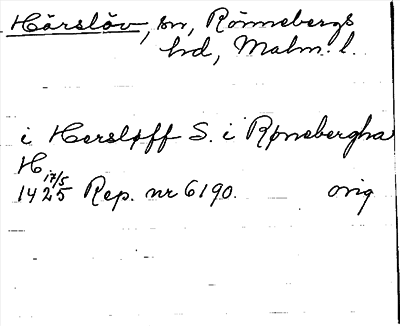 Härslöv, sn, Rönnebergs
hd, Malm. l.
i Hersløff S. i Rønebergha
H
17/5
1425 Rep. nr 6190. orig